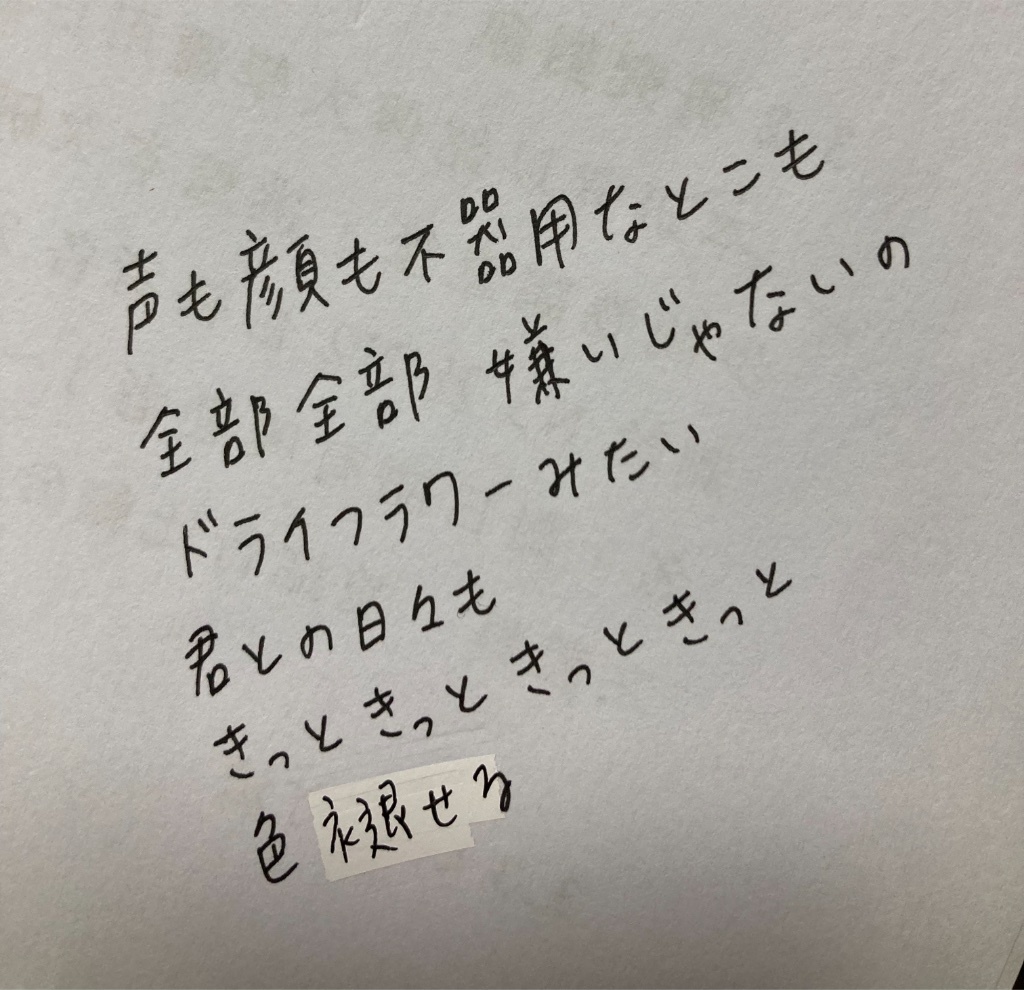 声も顔も不器用なとこも
全部全部 嫌いじゃないの
ドライフラワーみたい
君との日々も
きっときっときっときっと
色褪せる